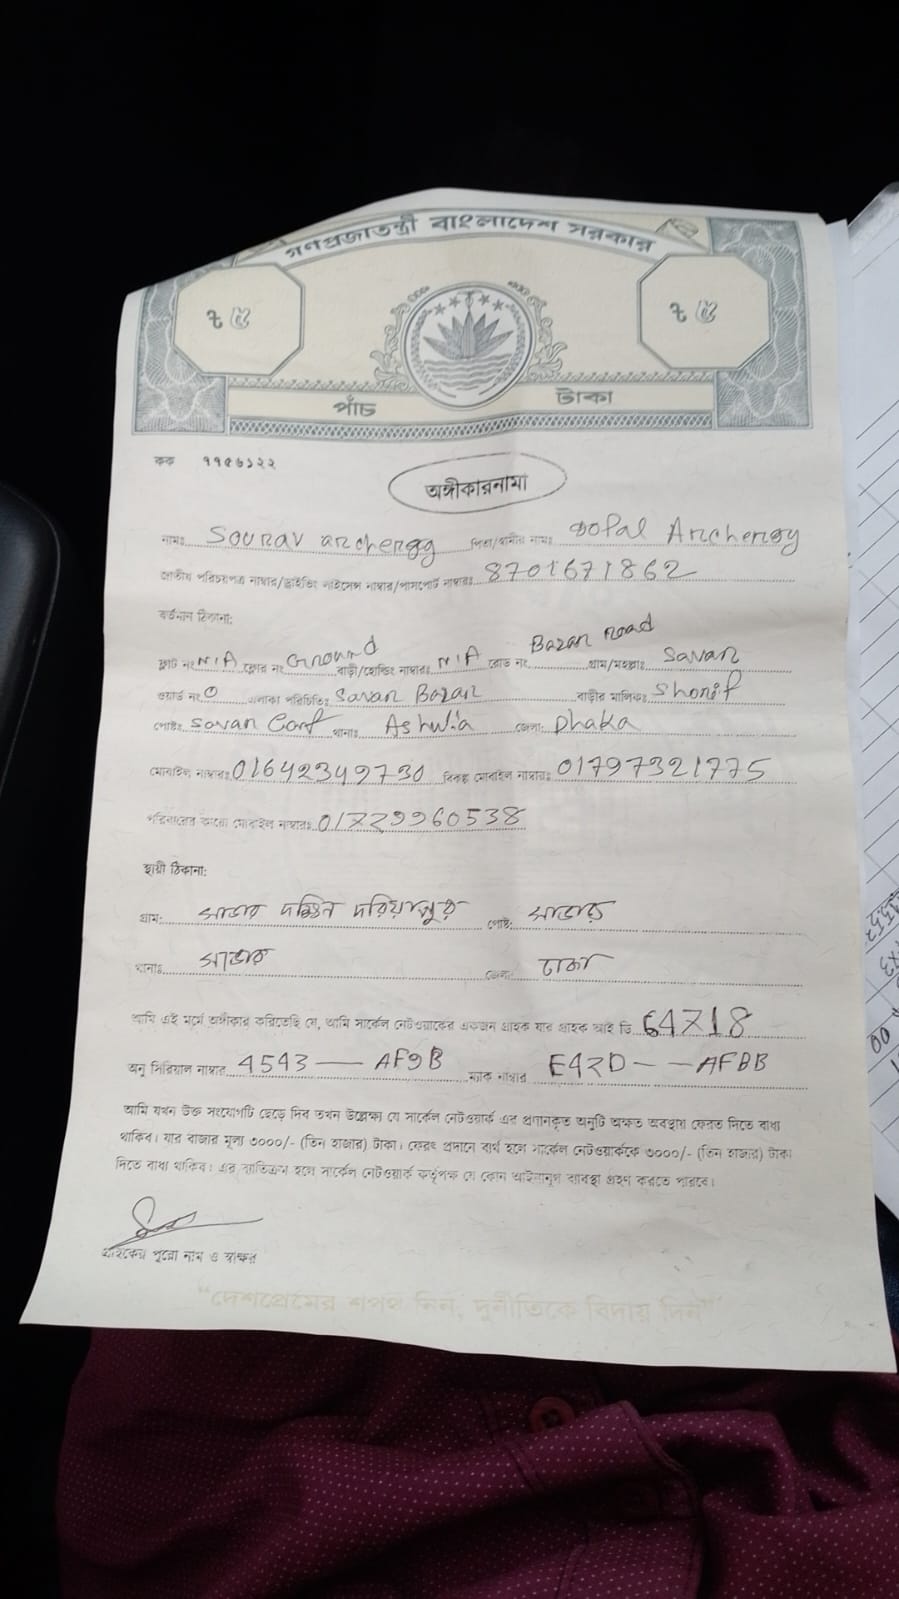 গণপ্রজাতন্ত্রী বাংলাদেশ সরকার
৳ ৫ ৳ ৫
পাঁচ টাকা
কক ৭৭৫৬১২২
অঙ্গীকারনামা
নামঃ Sourav পিতা/স্বামীর নামঃ Gopal
জাতীয় পরিচয়পত্র নাম্বার/ড্রাইভিং লাইসেন্স নাম্বার/পাসপোর্ট নাম্বারঃ 8701671862
বর্তমান ঠিকানা:
ফ্লাট নং N/A ফ্লোর নং Ground বাড়ী/হোল্ডিং নাম্বারঃ N/A রোড নং Bazar Road গ্রাম/মহল্লাঃ Savar
ওয়ার্ড নং 0 এলাকা পরিচিতিঃ Savar Bazar বাড়ীর মালিকঃ Shorif
পোষ্টঃ Savar থানাঃ Ashulia জেলা: Dhaka
মোবাইল নাম্বারঃ 01642349730 বিকল্প মোবাইল নাম্বারঃ 01797321775
পরিবারের কারো মোবাইল নাম্বারঃ
স্থায়ী ঠিকানা:
গ্রাম: সাভার দক্ষিন দরিয়াপুর পোষ্ট: সাভার
থানাঃ সাভার জেলা: ঢাকা
আমি এই মর্মে অঙ্গীকার করিতেছি যে, আমি সার্কেল নেটওয়ার্কের একজন গ্রাহক যার গ্রাহক আই ডি
অনু সিরিয়াল নাম্বার 4543 — AF9B ম্যাক নাম্বার
আমি যখন উক্ত সংযোগটি ছেড়ে দিব তখন উল্লেক্ষ্য যে সার্কেল নেটওয়ার্ক এর প্রদানকৃত অনুটি অক্ষত অবস্থায় ফেরত দিতে বাধ্য
থাকিব। যার বাজার মূল্য ৩০০০/- (তিন হাজার) টাকা। ফেরৎ প্রদানে ব্যর্থ হলে সার্কেল নেটওয়ার্ককে ৩০০০/- (তিন হাজার) টাকা
দিতে বাধ্য থাকিব। এর ব্যতিক্রম হলে সার্কেল নেটওয়ার্ক কর্তৃপক্ষ যে কোন আইনানুগ ব্যবস্থা গ্রহণ করতে পারবে।
গ্রাহকের পুরো নাম ও স্বাক্ষর
"দেশপ্রেমের শপথ নিন, দুর্নীতিকে বিদায় দিন"